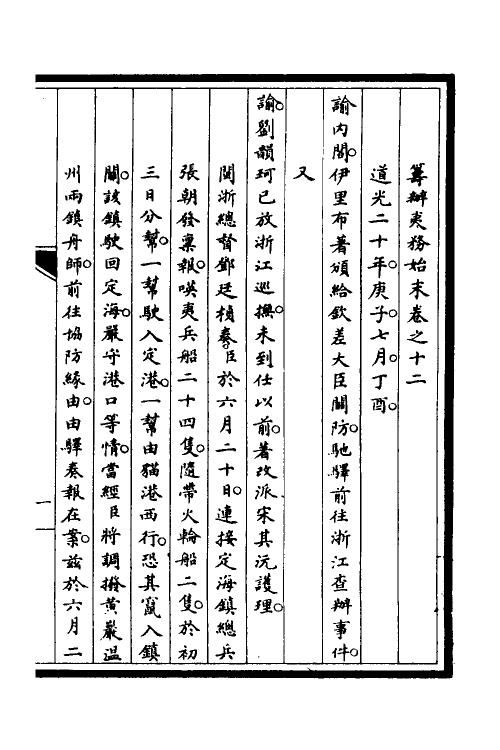 籌辦夷務始末卷之十二
道光二十年。庚子七月。丁酉。
諭內閣。伊里布著頒給欽差大臣關防。馳驛前往浙江查辦事件。
又
諭。劉韻珂已放浙江巡撫。未到任以前。著改派宋其沅護理。
閩浙總督鄧廷楨奏。臣於六月二十日。連接定海鎮總兵
張朝發稟報。唊夷兵船二十四隻。隨帶火輪船二隻。於初
三日分幫。一幫駛入定港。一幫由猫港西行。恐其竄入鎮
關。該鎮駛回定海。嚴守港口等情。當經臣將調撥黃巖溫
州兩鎮舟師。前往協防緣由。由驛奏報在案。茲於六月二
一